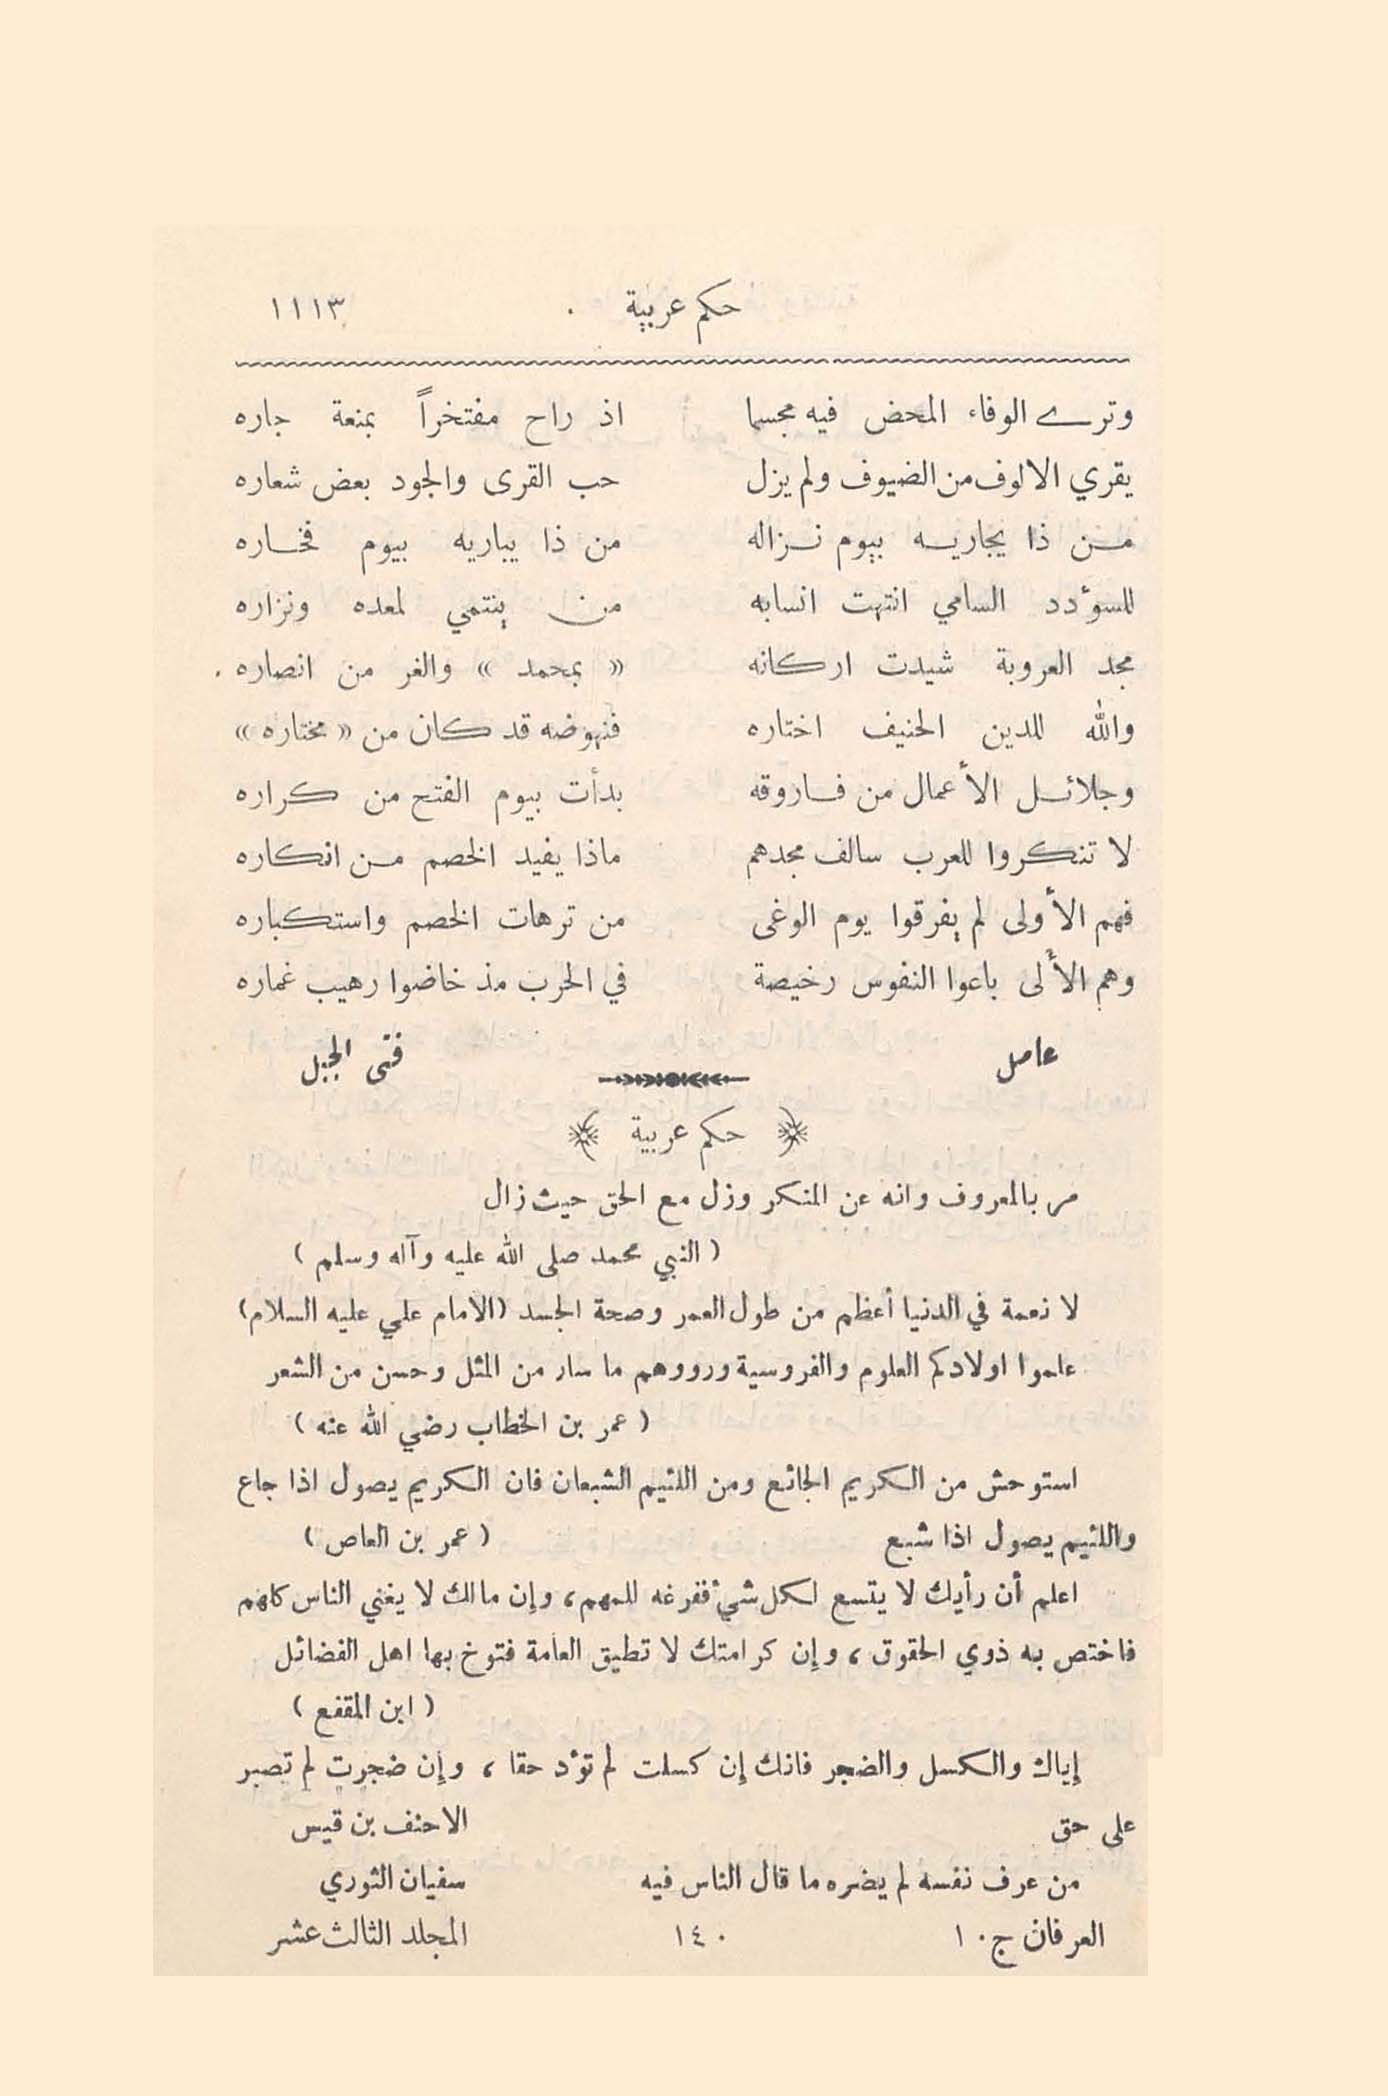 حكم عربية ١١١٣
وترى الوفاء المحض فيه مجسما اذ راح مفتخراً بمنعة جاره
يقري الالوف من الضيوف ولم يزل حب القرى والجود بعض شعاره
من ذا يجاريه بيوم نزاله من ذا يباريه بيوم فخاره
للسؤدد السامي انتهت انسابه من ينتمي لمعده ونزاره
مجد العروبة شيدت اركانه « بمحمد » والغر من انصاره
والله للدين الحنيف اختاره فنهوضه قد كان من « مختاره »
وجلائل الأعمال من فاروقه بدأت بيوم الفتح من كراره
لا تنكروا للعرب سالف مجدهم ماذا يفيد الخصم من انكاره
فهم الأولى لم يفرقوا يوم الوغى من ترهات الخصم واستكباره
وهم الألى باعوا النفوس رخيصة في الحرب مذ خاضوا رهيب غماره
عامل فتى الجبل
﴿ حكم عربية ﴾
مر بالمعروف وانه عن المنكر وزل مع الحق حيث زال
( النبي محمد صلى الله عليه وآله وسلم )
لا نعمة في الدنيا أعظم من طول العمر وصحة الجسد (الامام علي عليه السلام)
علموا اولادكم العلوم والفروسية ورووهم ما سار من المثل وحسن من الشعر
( عمر بن الخطاب رضي الله عنه )
استوحش من الكريم الجائع ومن اللئيم الشبعان فان الكريم يصول اذا جاع
واللئيم يصول اذا شبع ( عمر بن العاص )
اعلم أن رأيك لا يتسع لكل شيء ففرغه للمهم، وإن مالك لا يغني الناس كلهم
فاختص به ذوي الحقوق، وإن كرامتك لا تطيق العامة فتوخ بها اهل الفضائل
( ابن المقفع )
إياك والكسل والضجر فانك إن كسلت لم تؤد حقا، وإن ضجرت لم تصبر
على حق الاحنف بن قيس
من عرف نفسه لم يضره ما قال الناس فيه سفيان الثوري
العرفان ج١٠ ١٤٠ المجلد الثالث عشر